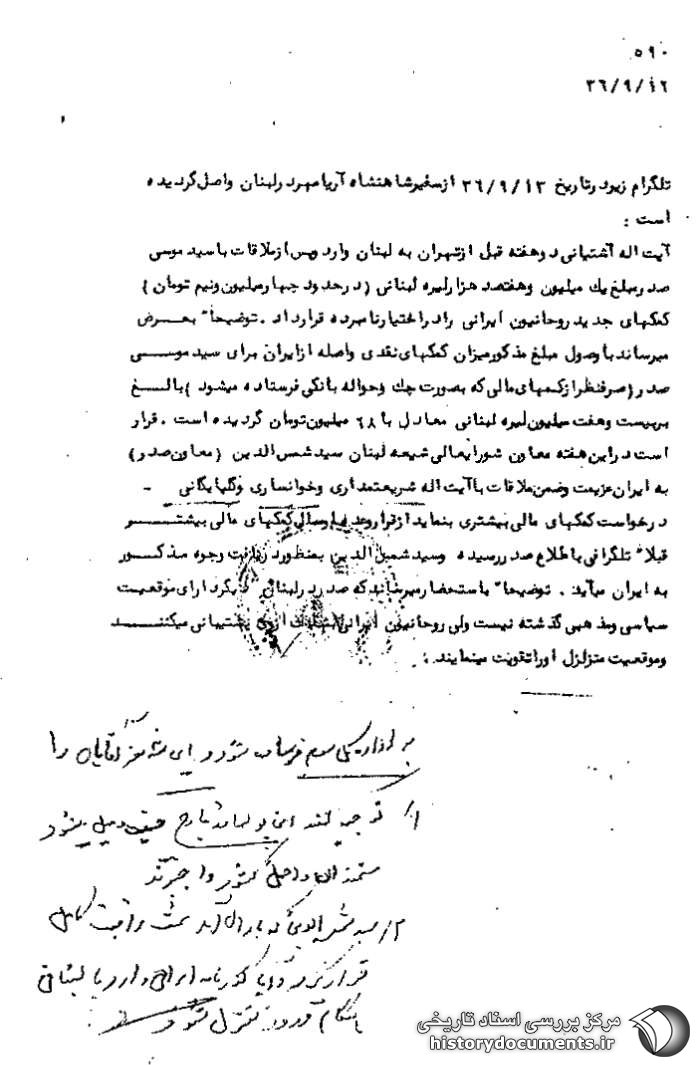 ۵۹۰
۳۶/۹/۱۶
تلگرام زیر در تاریخ ۳۶/۹/۱۳ از سفیر شاهنشاه آریامهر در لبنان واصل گردیده
است :
آیت اله آشتیانی دو هفته قبل از تهران به لبنان وارد و پس از ملاقات با سید موسی
صدر مبلغ یک میلیون و هفتصد هزار لیره لبنانی ( در حدود چهار میلیون و نیم تومان )
کمکهای جدید روحانیون ایرانی را در اختیار نامبرده قرار داد . توضیحا" بعرض
میرساند با وصول مبلغ مذکور میزان کمکهای نقدی واصله از ایران برای سید موسی
صدر ( صرفنظر از کمهای مالی که بصورت چک و حواله بانکی فرستاده میشود ) بالغ
بر بیست و هفت میلیون لیره لبنانی معادل با ۶۸ میلیون تومان گردیده است . قرار
است در این هفته معاون شورایعالی شیعه لبنان سید شمس الدین ( معاون صدر )
به ایران عزیمت و ضمن ملاقات با آیت اله شریعتمداری و خوانساری و گلپایگانی -
درخواست کمکهای مالی بیشتری بنماید از قرار وعده ارسال کمکهای مالی بیشتر
قبلا" تلگرافی باطلاع صدر رسیده و سید شمس الدین بمنظور دریافت وجوه مذکور
به ایران میآید . توضیحا" باستحضار میرساند که صدر در لبنان دیگر دارای موقعیت
سیاسی و مذهبی گذشته نیست ولی روحانیون ایرانی از وی پشتیبانی میکنند
و موقعیت متزلزل او را تقویت مینمایند .
به اداره کل سوم شود و
۱/ توجیه کنند این میشود
داخل کشور
۲/ سید شمس الدین که به ایران آمد تحت مراقبت کامل
قرار گیرد و آیا گذرنامه ایرانی دارد یا لبنانی
هنگام ورود کنترل شود
مرکز بررسی اسناد تاریخی
historydocuments.ir